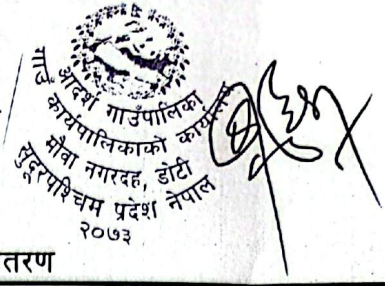 आदर्श गाउँपालिका
गाउँ कार्यपालिकाको कार्यालय
मौवा नगरदह, डोटी
सुदूरपश्चिम प्रदेश नेपाल
२०७३
तरण